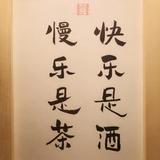 快乐是酒
慢乐是茶